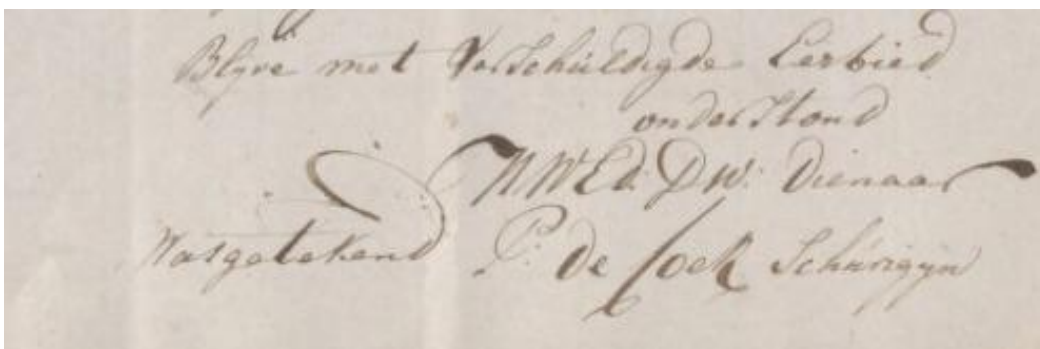 Blyve met Verschuldigde Eerbied
onderstond
UWEd: DW: Dienaar
Wasgetekend P: de Cock Schürigyn